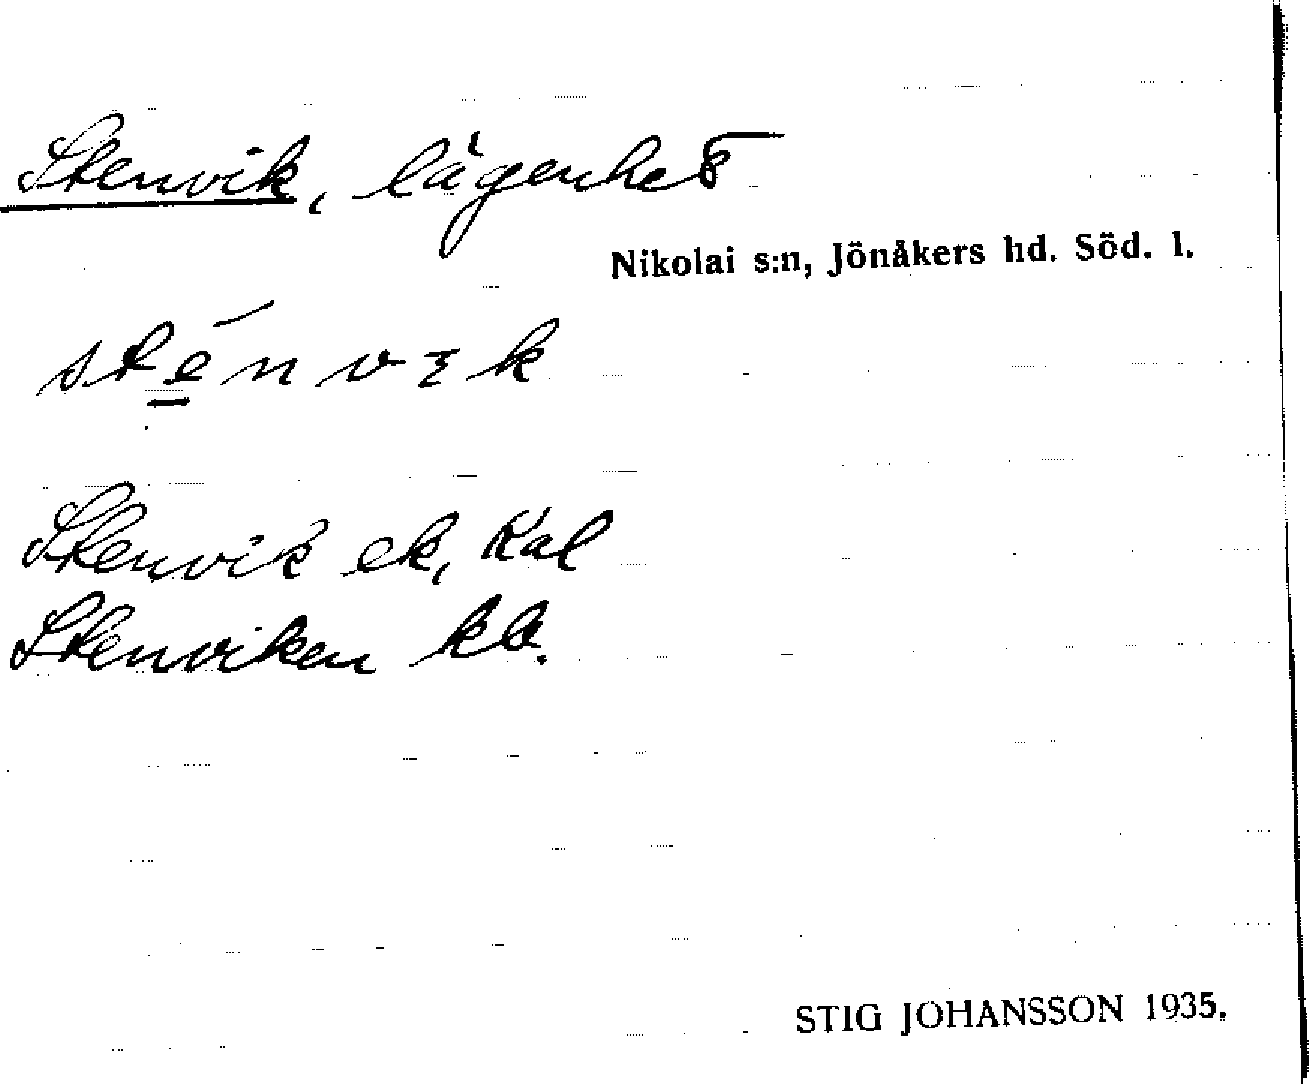 Stenvik, lägenhet
Nikolai s:n, Jönåkers hd. Söd. l.
sténvɪk
Stenvik ek, Kal
Stenviken kb.
STIG JOHANSSON 1935.